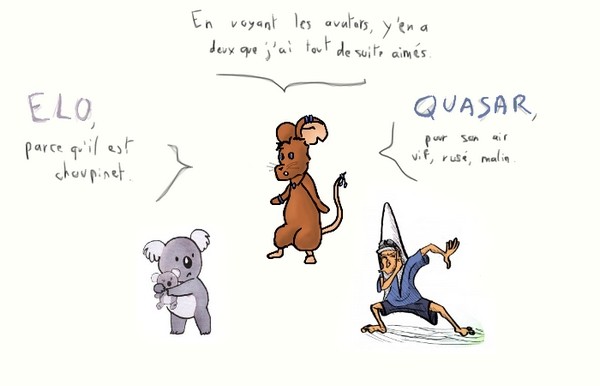 En voyant les avatars, y'en a
deux que j'ai tout de suite aimés.
ELO,
parce qu'il est
choupinet.
QUASAR,
pour son air
vif, rusé, malin.